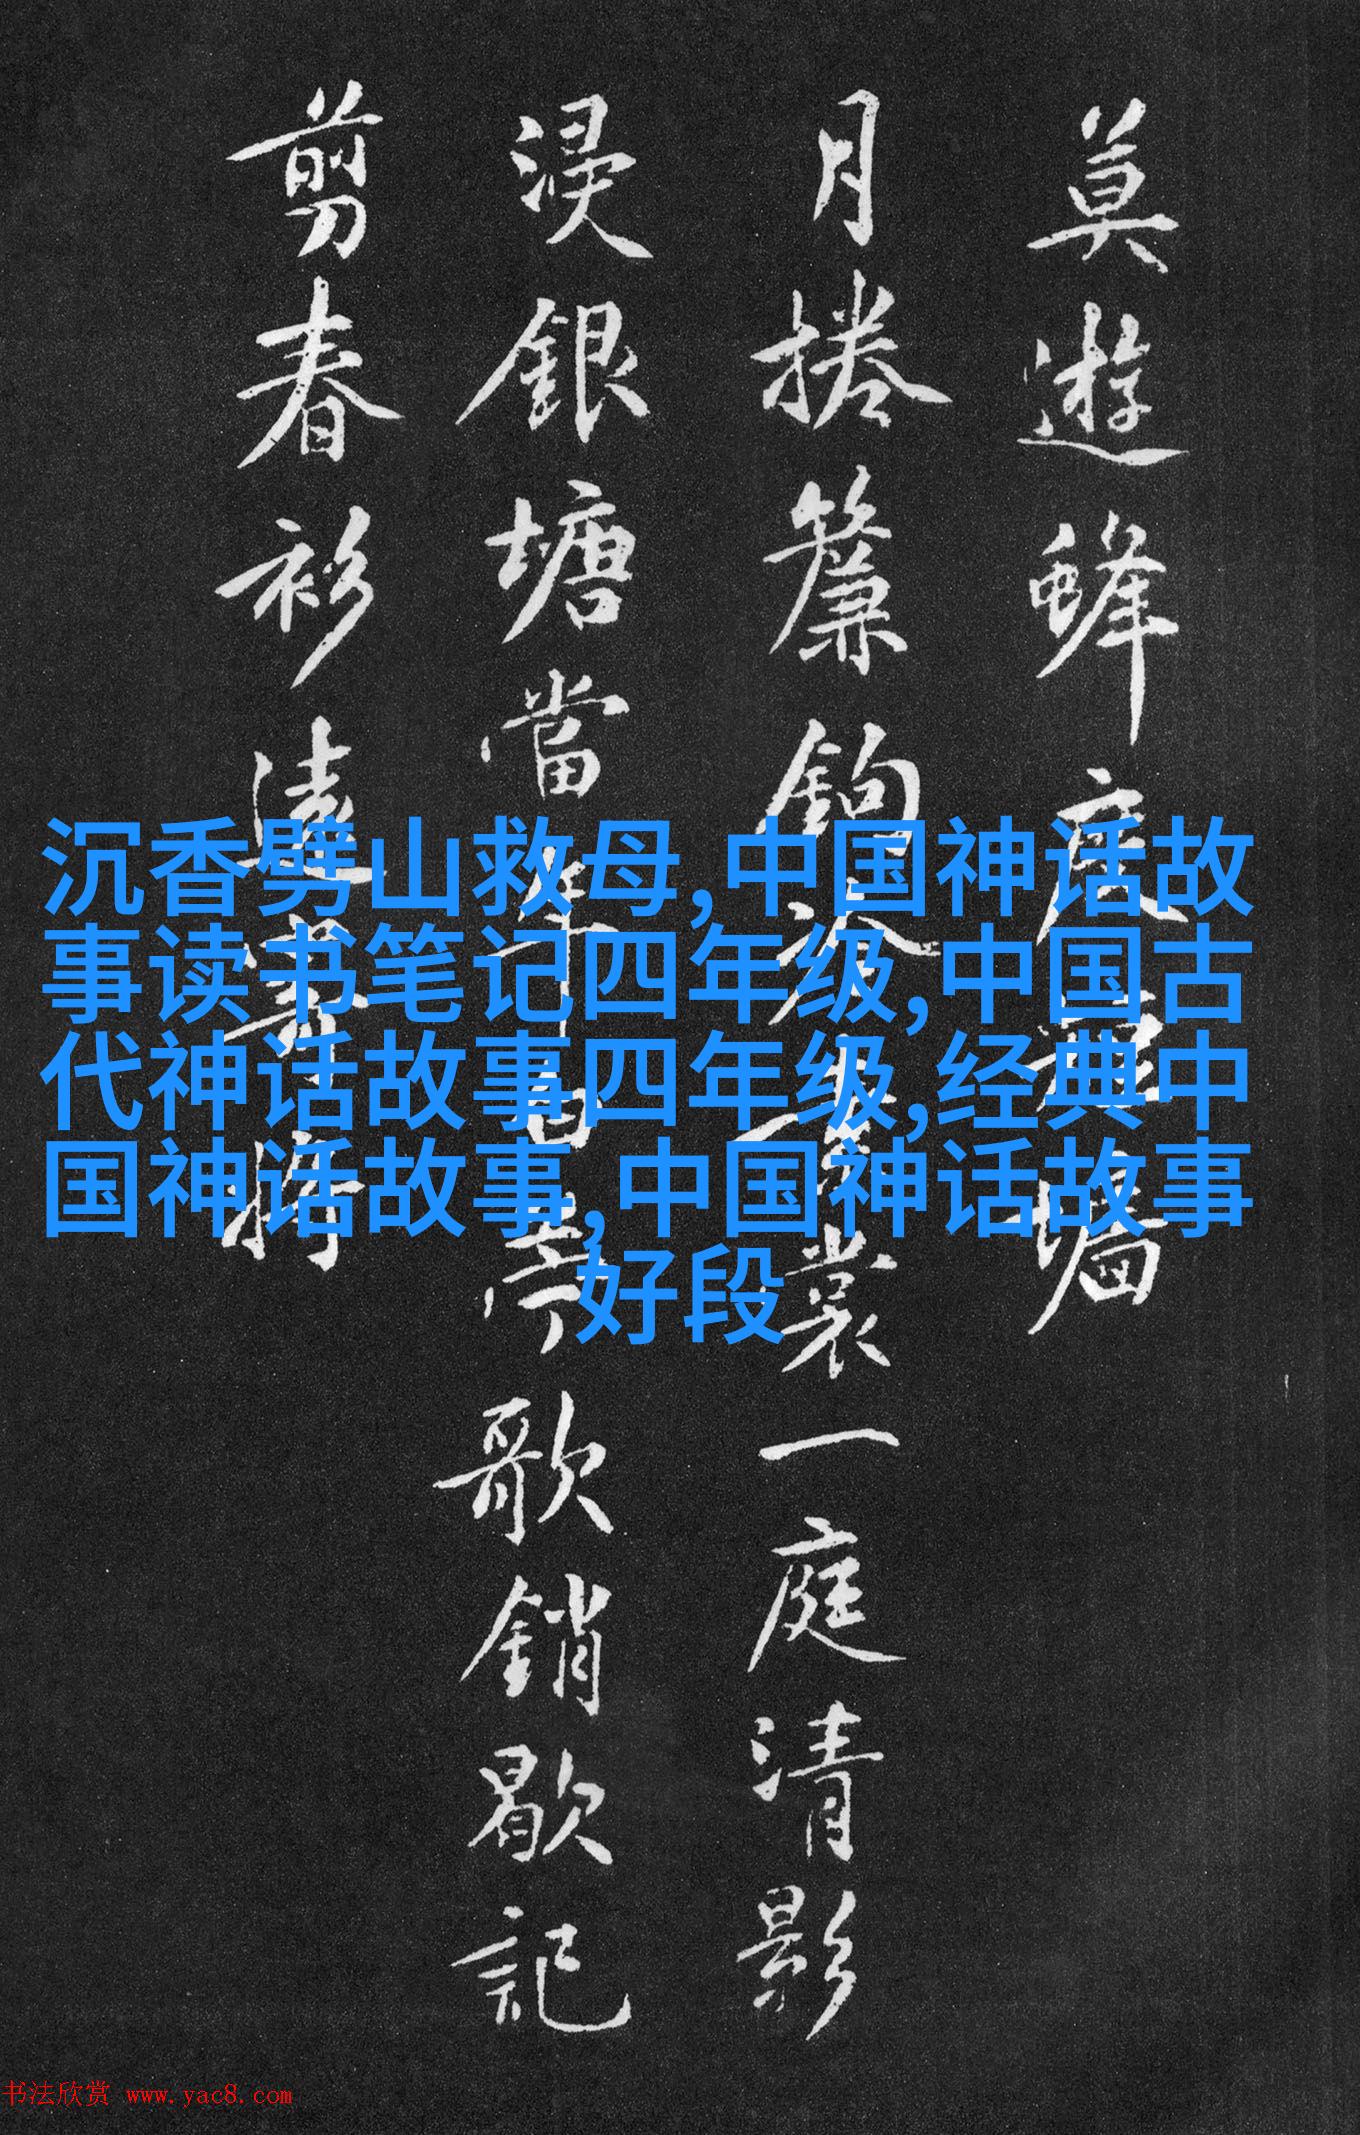 莫遊蜂度墻
月捲簾鉤冷裳一庭清影
浸銀塘當年白苧歌銷歇記
剪春衫遠寄將
沉香劈山救母,中国神话故
事读书笔记四年级,中国古
代神话故事四年级,经典中
国神话故事,中国神话故事
好段
书法欣赏 www.yac8.com